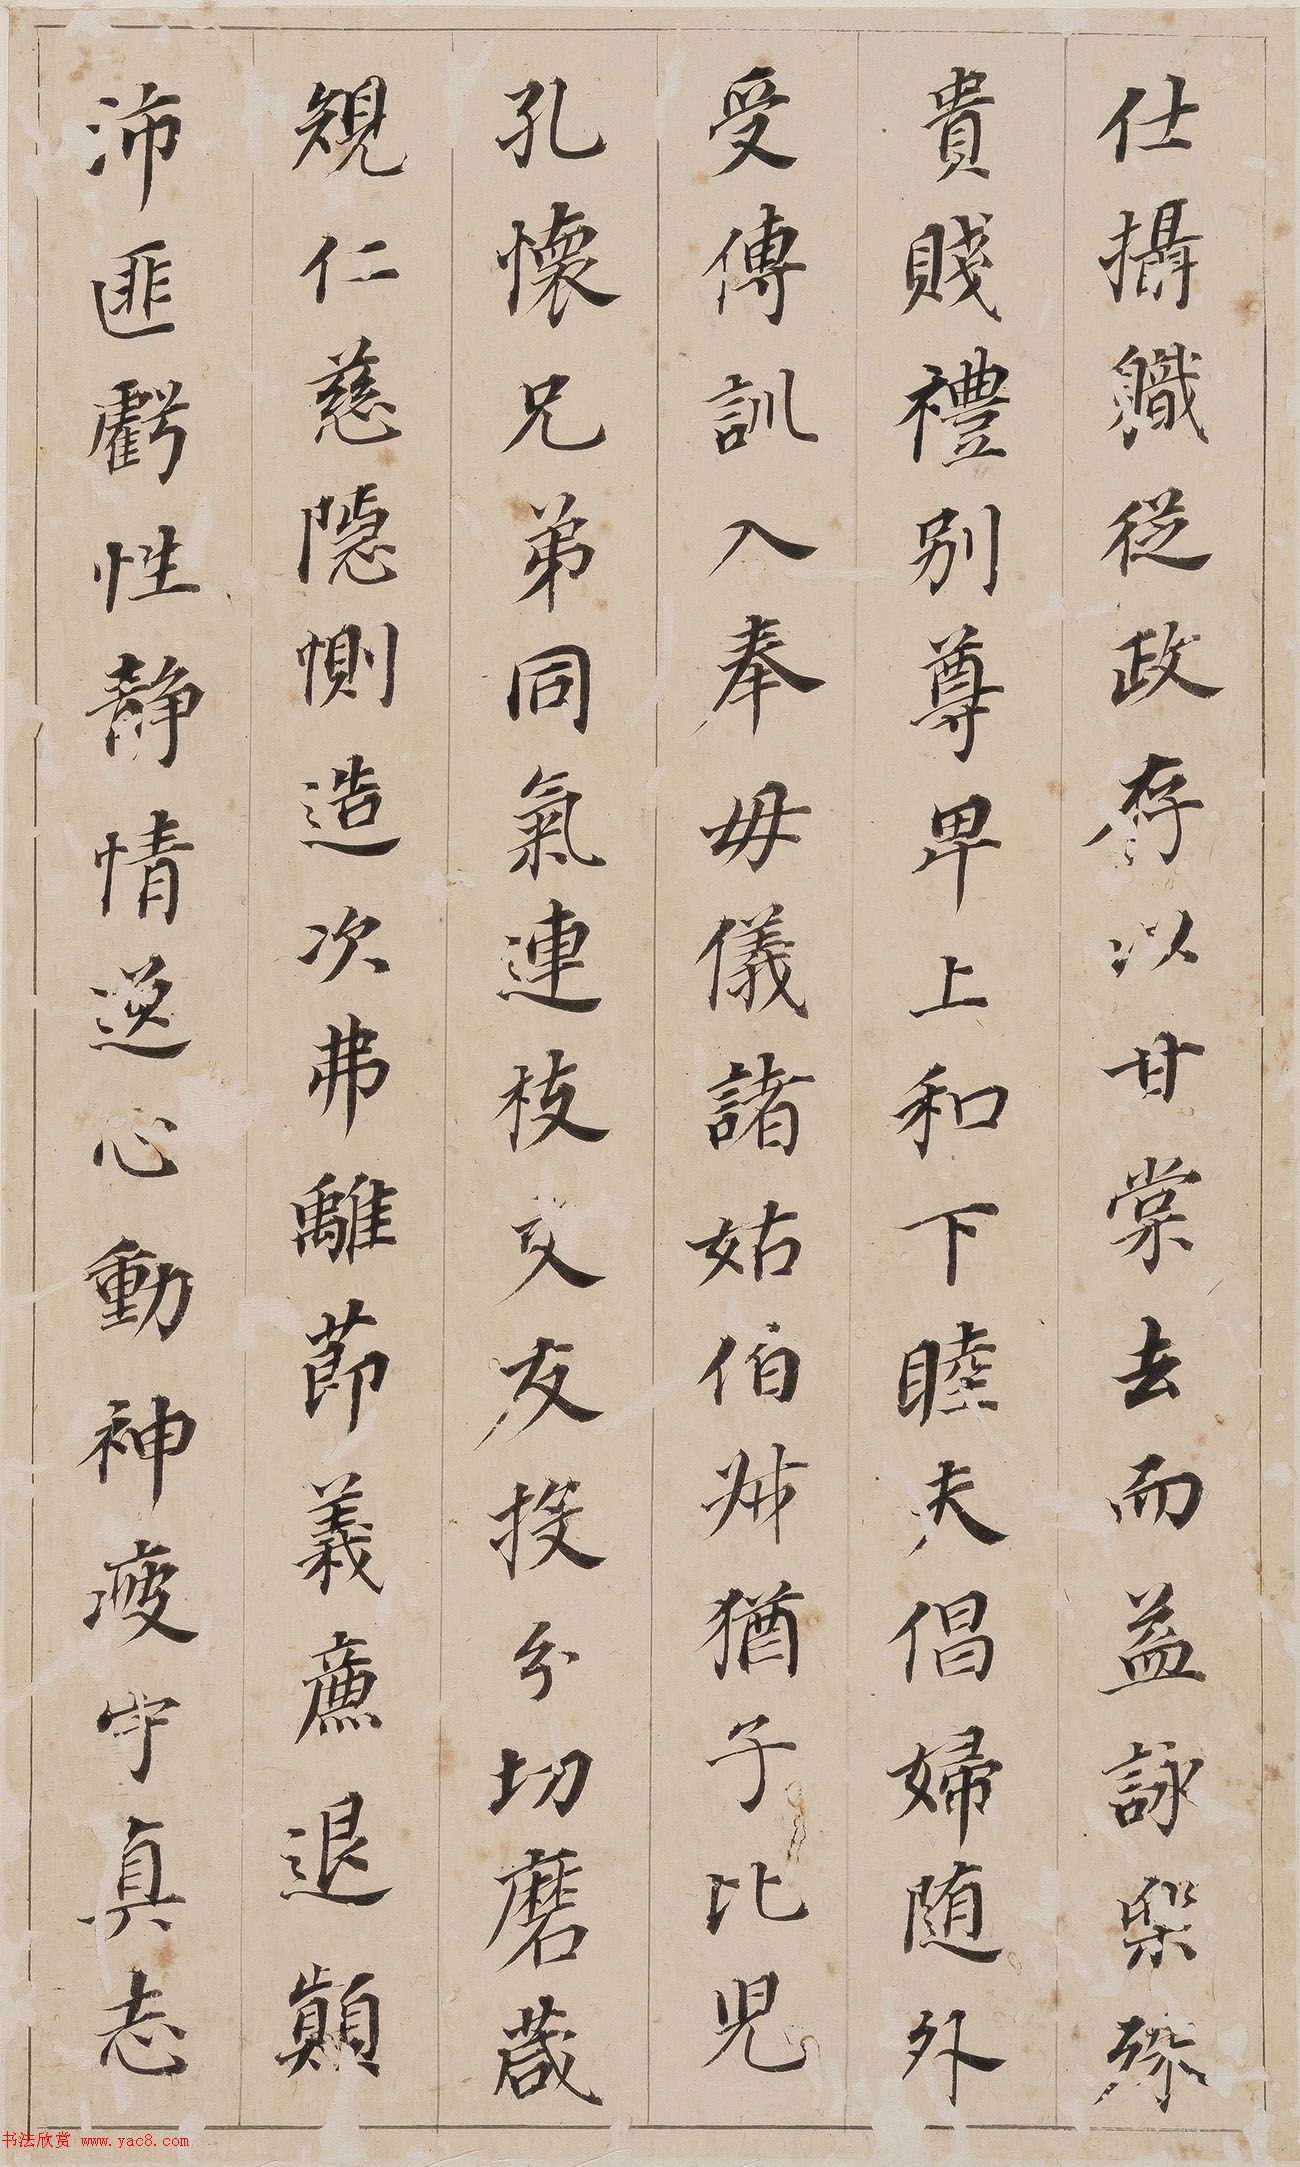 仕攝職從政存以甘棠去而益詠樂殊
貴賤禮別尊卑上和下睦夫倡婦随外
受傅訓入奉母儀諸姑伯叔猶子比兒
孔懷兄弟同氣連枝交友投分切磨葴
規仁慈隱惻造次弗離節義廉退顛
沛匪虧性靜情逸心動神疲守真志
书法欣赏 www.yac8.com